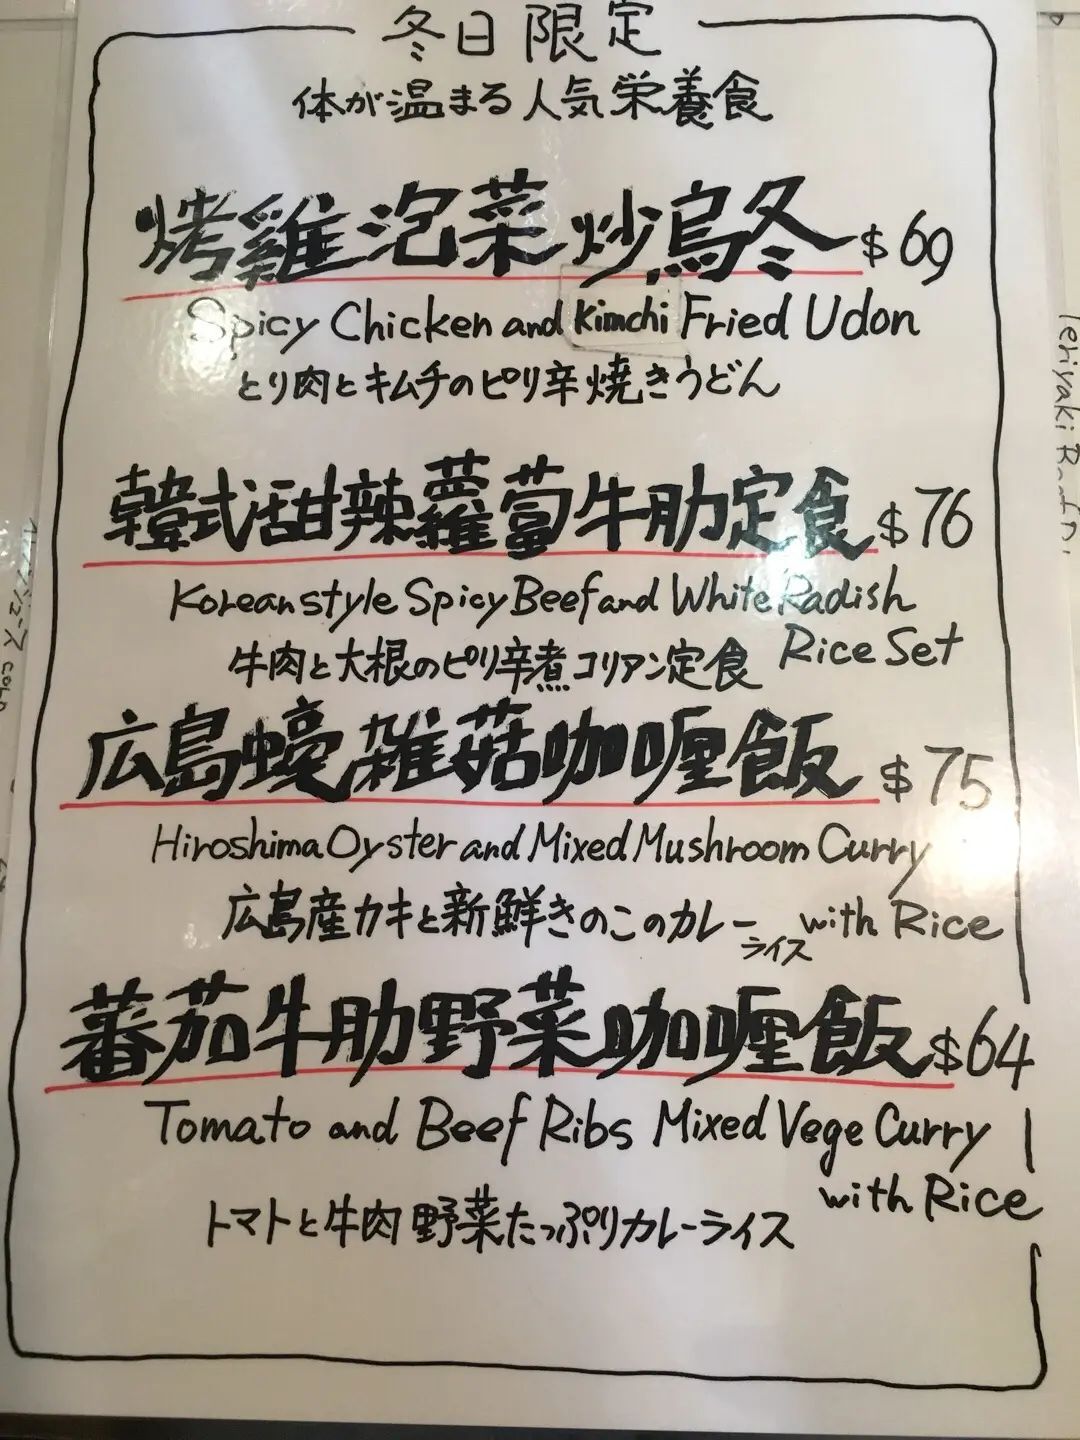 冬日限定
体が温まる人気栄養食
烤雞泡菜炒烏冬 $69
Spicy Chicken and Kimchi Fried Udon
とり肉とキムチのピリ辛焼きうどん
韓式甜辣蘿蔔牛肋定食 $76
Korean style Spicy Beef and White Radish
Rice Set
牛肉と大根のピリ辛煮コリアン定食
広島蠔雑菇咖喱飯 $75
Hiroshima Oyster and Mixed Mushroom Curry
with Rice
広島産カキと新鮮きのこのカレー
ライス
蕃茄牛肋野菜咖喱飯 $64
Tomato and Beef Ribs Mixed Vege Curry
with Rice
トマトと牛肉野菜たっぷりカレーライス
Teriyaki